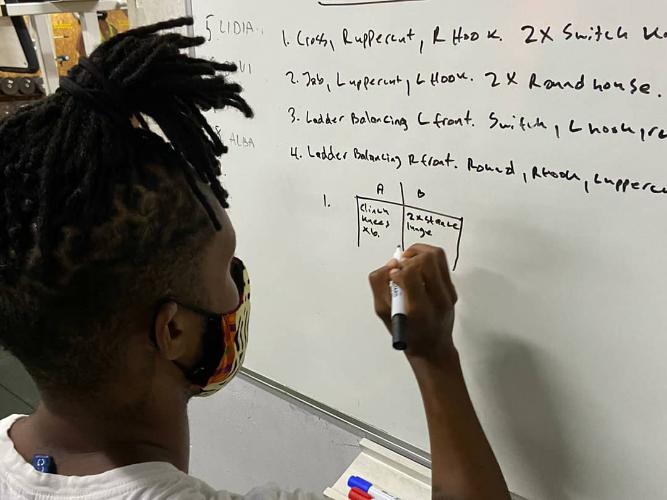 5 LIDIA
VI
8 ALBA
1. Cross, Ruppercut, R Hook. 2X Switch
2. Jab, Luppercut, L Hook. 2X Roundhouse.
3. Ladder Balancing L front. Switch, L hook,
4. Ladder Balancing R front. Round, R Hook, Luppercu
1.
A B
Clinch knees x6.
2x Stance lunge